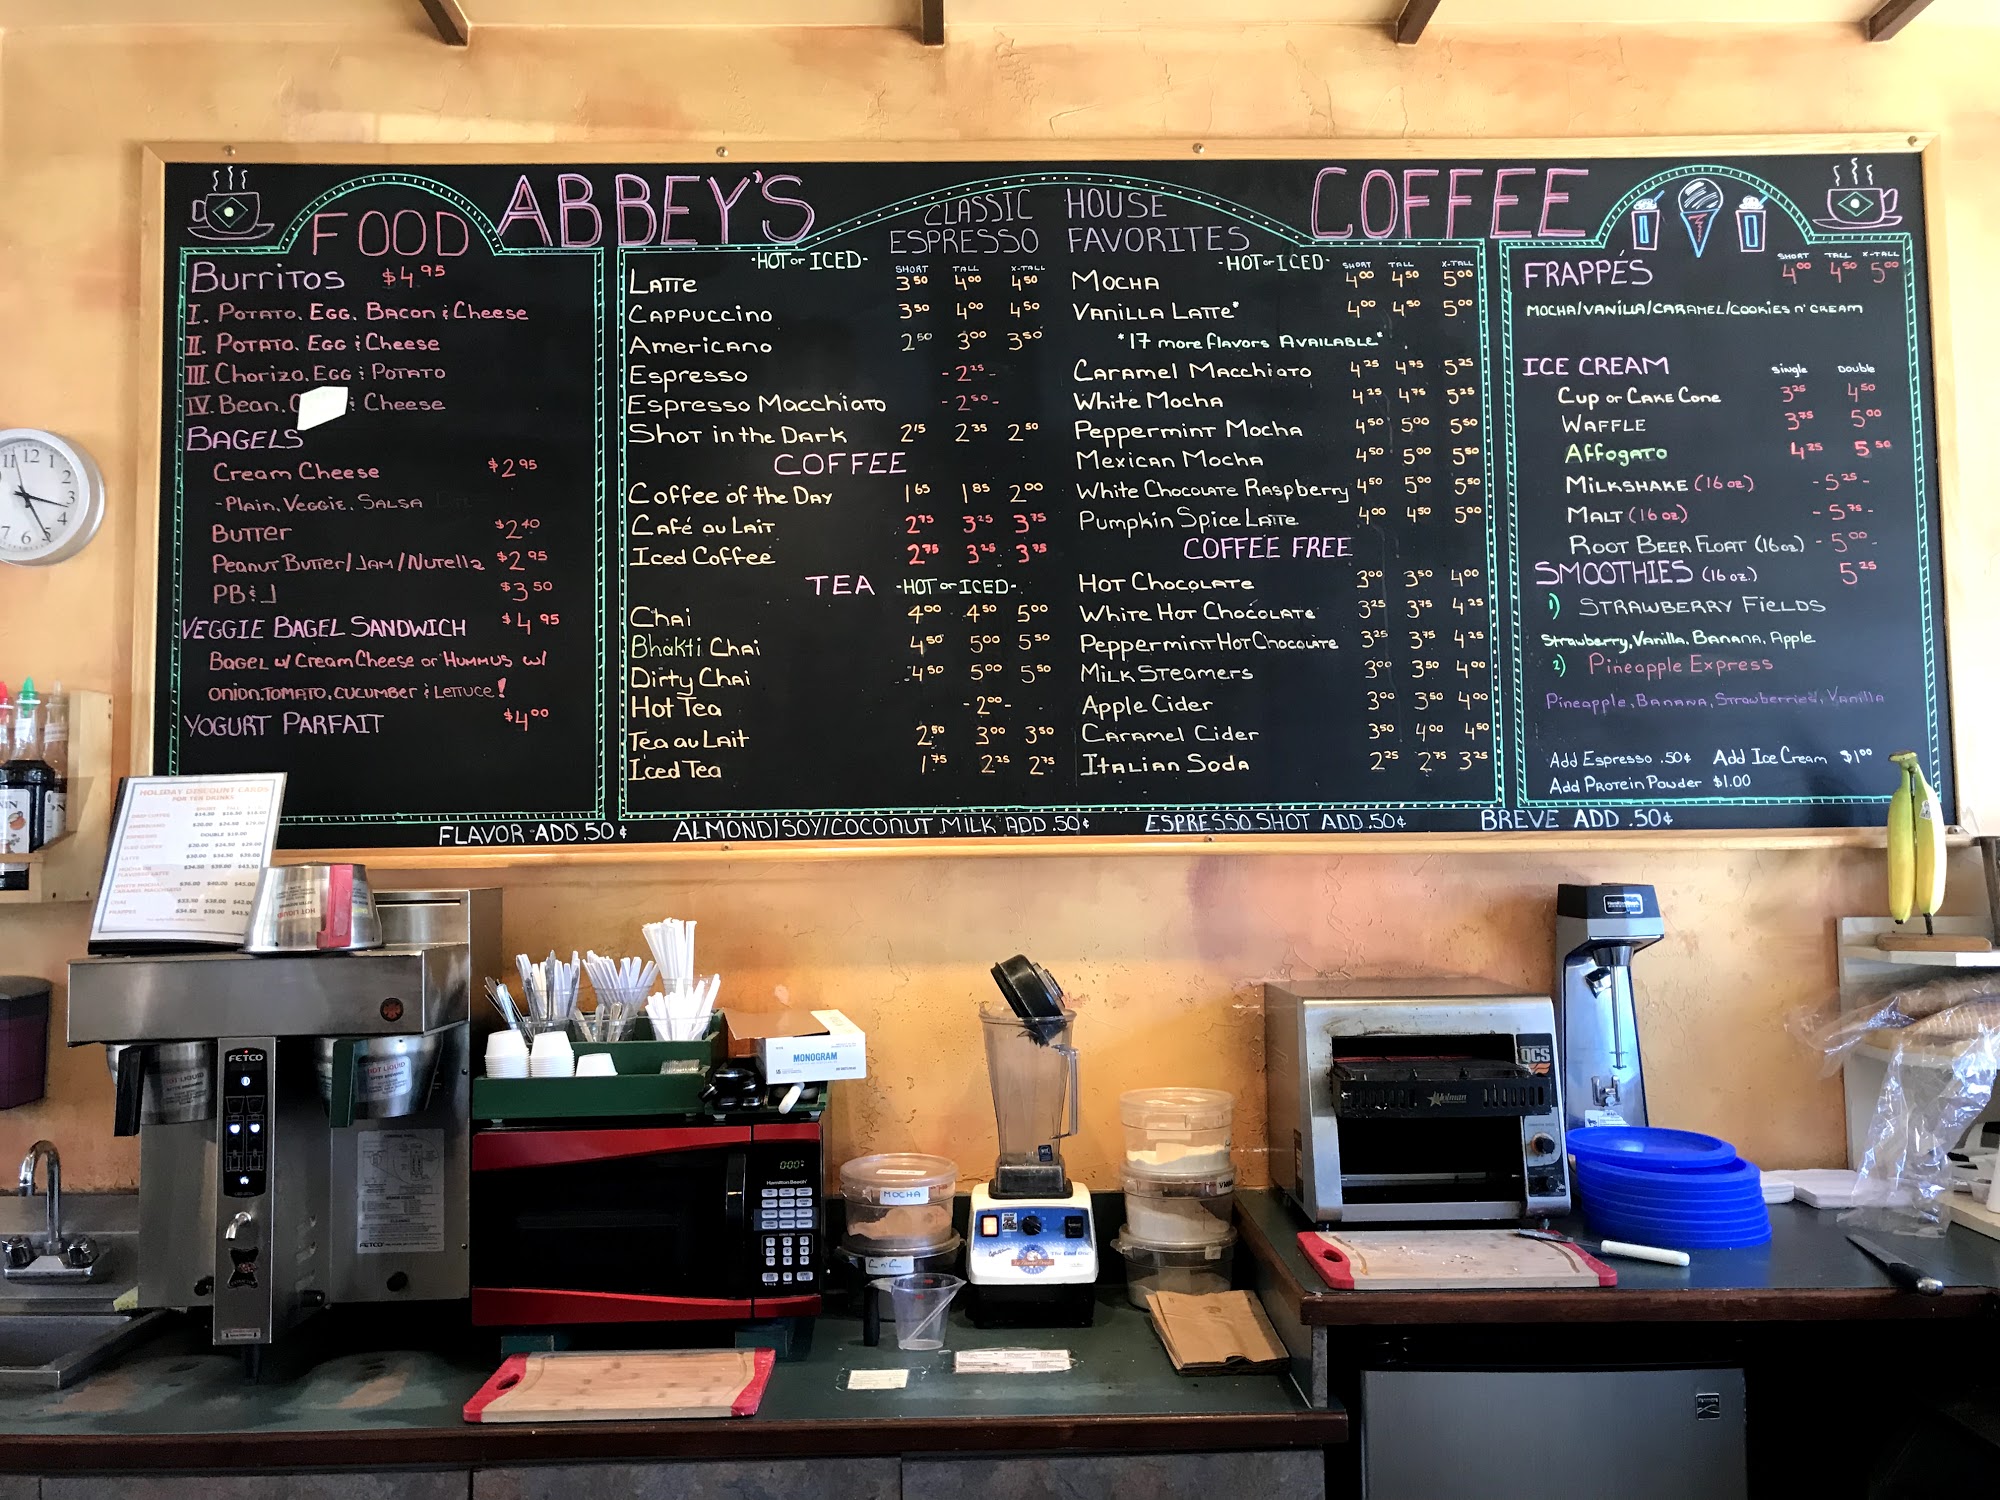 ABBEY'S COFFEE
FOOD
Burritos $4.95
I. Potato, Egg, Bacon & Cheese
II. Potato, Egg & Cheese
III. Chorizo, Egg & Potato
IV. Bean, & Cheese
BAGELS
Cream Cheese $2.95
-Plain, Veggie, Salsa
Butter $2.40
Peanut Butter/Jam/Nutella $2.95
PB&J $3.50
VEGGIE BAGEL SANDWICH $4.95
Bagel w/ Cream Cheese or Hummus w/
onion, tomato, cucumber & Lettuce!
YOGURT PARFAIT $4.00
CLASSIC ESPRESSO
-HOT or ICED-
SHORT TALL X-TALL
Latte 3.50 4.00 4.50
Cappuccino 3.50 4.00 4.50
Americano 2.50 3.00 3.50
Espresso -2.25-
Espresso Macchiato -2.50-
Shot in the Dark 2.15 2.35 2.50
COFFEE
Coffee of the Day 1.65 1.85 2.00
Café au Lait 2.75 3.25 3.75
Iced Coffee 2.75 3.25 3.75
TEA -HOT or ICED-
Chai 4.00 4.50 5.00
Bhakti Chai 4.50 5.00 5.50
Dirty Chai 4.50 5.00 5.50
Hot Tea -2.00-
Tea au Lait 2.50 3.00 3.50
Iced Tea 1.75 2.25 2.75
HOUSE FAVORITES
-HOT or ICED-
SHORT TALL X-TALL
Mocha 4.00 4.50 5.00
Vanilla Latte* 4.00 4.50 5.00
*17 more flavors Available*
Caramel Macchiato 4.25 4.75 5.25
White Mocha 4.25 4.75 5.25
Peppermint Mocha 4.50 5.00 5.50
Mexican Mocha 4.50 5.00 5.50
White Chocolate Raspberry 4.50 5.00 5.50
Pumpkin Spice Latte 4.00 4.50 5.00
COFFEE FREE
Hot Chocolate 3.00 3.50 4.00
White Hot Chocolate 3.25 3.75 4.25
Peppermint Hot Chocolate 3.25 3.75 4.25
Milk Steamers 3.00 3.50 4.00
Apple Cider 3.00 3.50 4.00
Caramel Cider 3.50 4.00 4.50
Italian Soda 2.25 2.75 3.25
SHORT TALL X-TALL
FRAPPÉS 4.00 4.50 5.00
MOCHA/VANILLA/CARAMEL/COOKIES N' CREAM
ICE CREAM Single Double
Cup or Cake Cone 3.25 4.50
Waffle 3.75 5.00
Affogato 4.25 5.50
Milkshake (16 oz) -5.25-
Malt (16 oz) -5.75-
Root Beer Float (16 oz) -5.00-
SMOOTHIES (16 oz.) 5.25
1) Strawberry Fields
Strawberry, Vanilla, Banana, Apple
2) Pineapple Express
Pineapple, Banana, Strawberries, Vanilla
Add Espresso .50¢ Add Ice Cream $1.00
Add Protein Powder $1.00
FLAVOR ADD .50¢ ALMOND/SOY/COCONUT MILK ADD .50¢ ESPRESSO SHOT ADD .50¢ BREVE ADD .50¢
11 12 1 2 3 4 5 6 7
HOLIDAY DISCOUNT CARDS
FOR TEN DRINKS
HOT LIQUID
FETCO
HOT LIQUID
HOT LIQUID
FETCO
MONOGRAM
000
Hamilton Beach
MOCHA
C n' C
Holman
QCS